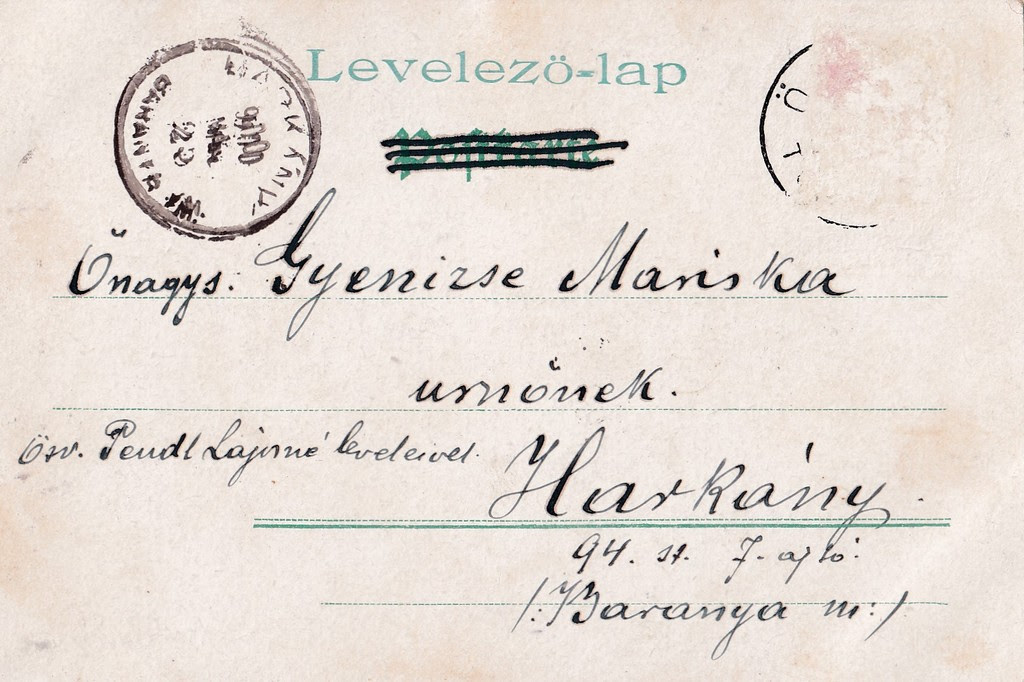 Levelező-lap
Postkarte
HARKÁNY
BARANYA VM
ÜT
Őnagys. Gyenizse Mariska
urnőnek.
özv. Pendl Lajosné leveleivel.
Harkány.
94. sz. 7. ajtó.
/: Baranya m:/